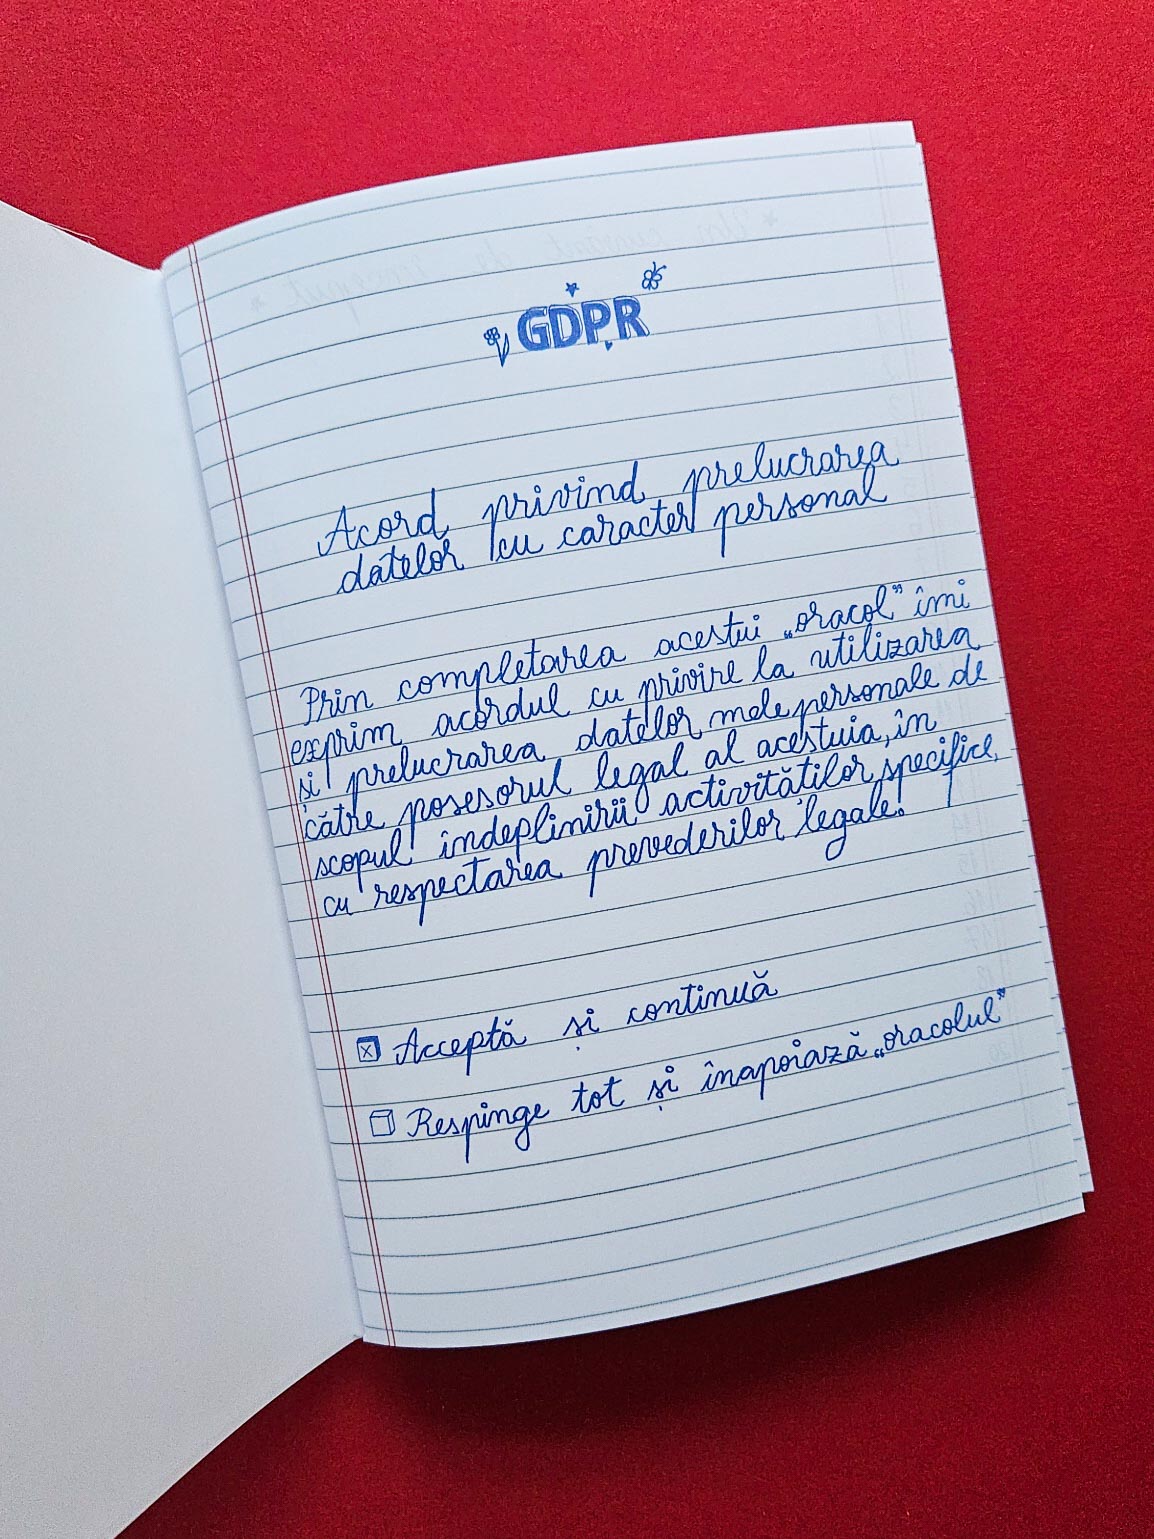 * Un cuvânt de
început *
GDPR
Acord privind prelucrarea
datelor cu caracter personal
Prin completarea acestui „oracol” îmi
exprim acordul cu privire la utilizarea
și prelucrarea datelor mele personale de
către posesorul legal al acestuia, în
scopul îndeplinirii activităților specifice,
cu respectarea prevederilor legale.
x Acceptă și continuă
Respinge tot și înapoiază „oracolul”